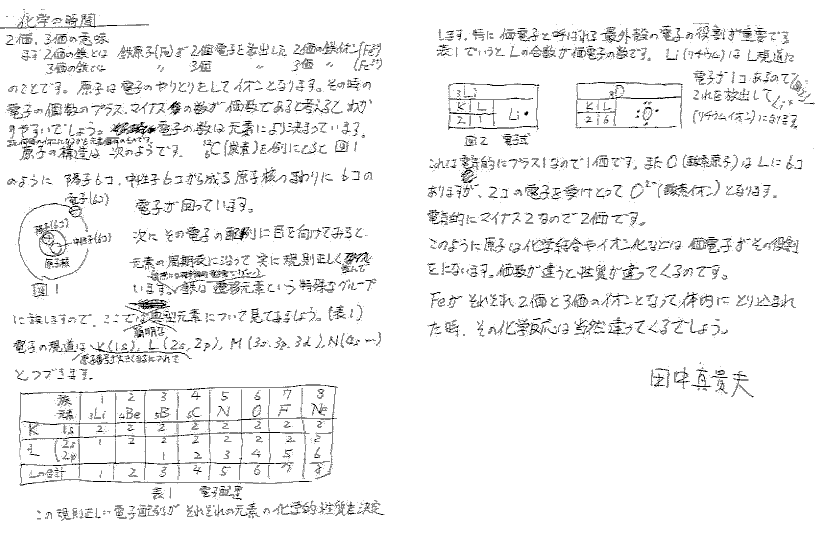 化学の時間
2価、3価の意味
まず2価の鉄とは 鉄原子(Fe)が2個電子を放出した2価の鉄イオン(Fe²⁺)
3価の鉄とは 〃 3個 〃 3価 〃 (Fe³⁺)
のことです。原子は電子のやりとりをしてイオンとなります。その時の
電子の個数のプラス、マイナスの数が価数であると考えるとわか
りやすいでしょう。電子の数は元素により決まっています。
原子の構造は次のようです。 ¹²₆C(炭素)を例にとると図1
のように陽子6コ、中性子6コから成る原子核のまわりに6コの
電子が回っています。
電子(6コ)
陽子(6コ)
中性子(6コ)
原子核
図1
次にその電子の配列に目を向けてみると、
元素の周期表に沿って実に規則正しく並んで
います。鉄は遷移元素という特殊なグループ
に族しますので、ここでは典型元素について見てみましょう。(表1)
簡明な
電子の軌道は K(1s), L(2s, 2p), M(3s, 3p, 3d), N(4s…)
とつづきます。
族 1 2 3 4 5 6 7 8
元素 ₃Li ₄Be ₅B ₆C N O F Ne
K 1s 2 2 2 2 2 2 2 2
L 2s 1 2 2 2 2 2 2 2
2p 1 2 3 4 5 6
Lの合計 1 2 3 4 5 6 7 8
表1 電子配置
この規則正しい電子配列がそれぞれの元素の化学的性質を決定
します。特に価電子と呼ばれる最外殻の電子の役割が重要です。
表1でいうとLの合数が価電子の数です。Li(リチウム)はL軌道に
電子が1コあるので
これを放出してLi⁺
(リチウムイオン)になります。
₃Li
K L
2 1
Li・
₈O
K L
2 6
O
図2 電子式
これは電気的にプラス1なので1価です。またO(酸素原子)はLに6コ
ありますが、2コの電子を受けとってO²⁻(酸素イオン)となります。
電気的にマイナス2なので2価です。
このように原子は化学結合やイオン化などは価電子がその役割
をにないます。価数が違うと性質が違ってくるのです。
Feがそれぞれ2価と3価のイオンとなって体内にとり込まれ
た時、その化学反応は当然違ってくるでしょう。
田中真貴夫